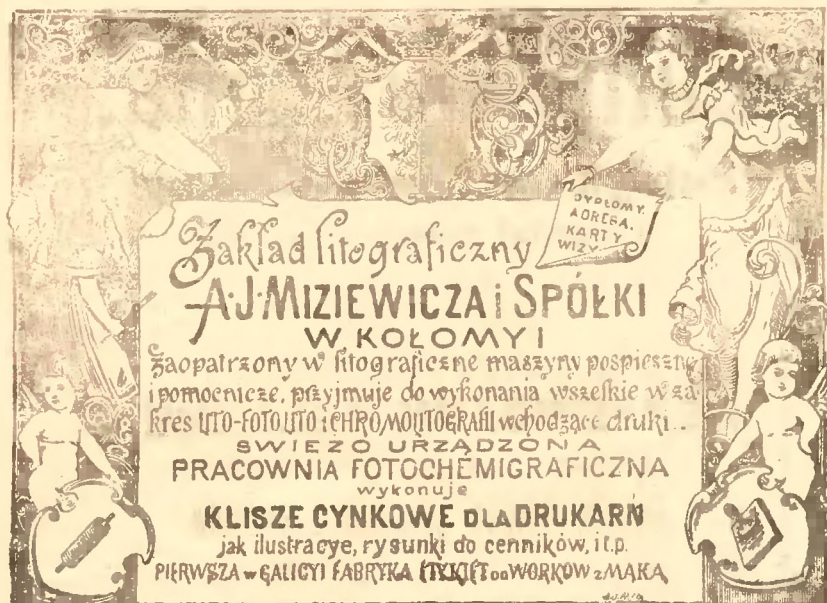 DYPLOMY.
ADRESA.
KARTY
WIZY
Zakład litograficzny
A·J·MIZIEWICZA i SPÓŁKI
W KOŁOMYI
Zaopatrzony w litograficzne maszyny pospieszne
i pomocnicze, przyjmuje do wykonania wszelkie w za
kres LITO-FOTOLITO i CHROMOLITOGRAFII wchodzące druki..
SWIEZO URZĄDZONA
PRACOWNIA FOTOCHEMIGRAFICZNA
wykonuje
KLISZE CYNKOWE DLA DRUKARŃ
jak ilustracye, rysunki do cenników, i t.p.
PIERWSZA w GALICYI FABRYKA ETYKIET DO WORKÓW z MĄKĄ